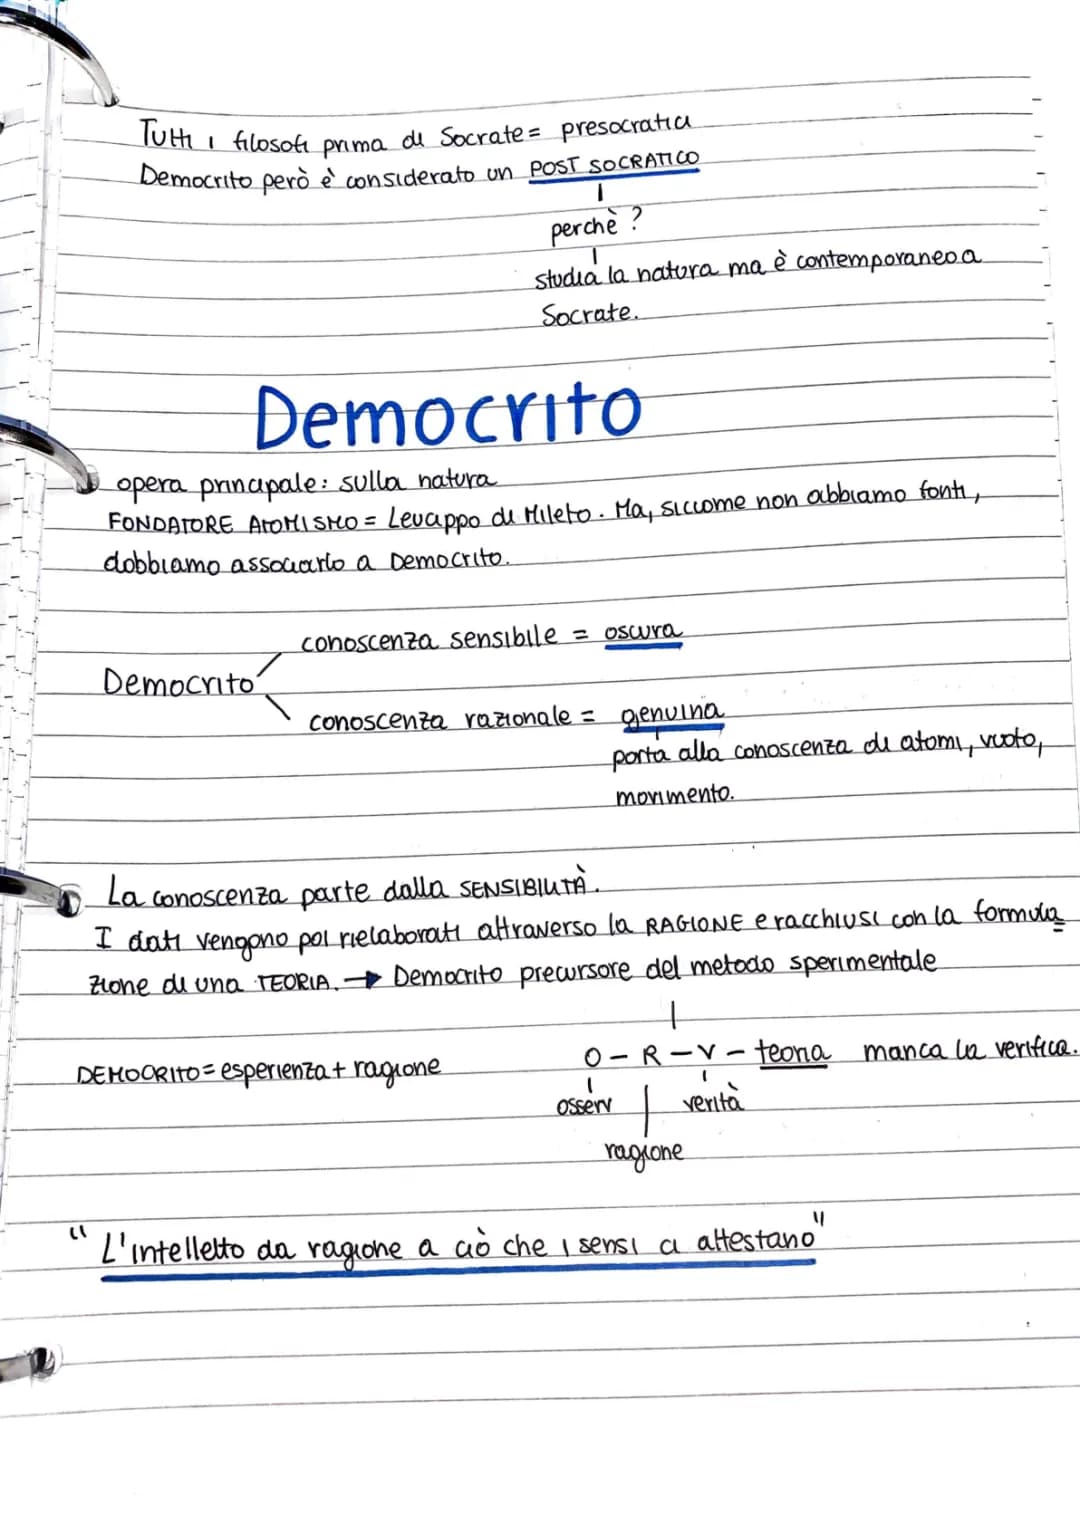 Tutti i filosofi prima di Socrate = presocratici
Democrito però è considerato un POST SOCRATICO
perchè ?
studia la natura ma è contemporaneo a
Socrate.
Democrito
opera principale: sulla natura
FONDATORE ATOMISMO = Leucippo di Mileto. Ma, siccome non abbiamo fonti,
dobbiamo associarlo a Democrito.
conoscenza sensibile = oscura
Democrito
conoscenza razionale = genuina
porta alla conoscenza di atomi, vuoto,
movimento.
La conoscenza parte dalla SENSIBILITÀ.
I dati vengono poi rielaborati attraverso la RAGIONE e racchiusi con la formula=
zione di una TEORIA. → Democrito precursore del metodo sperimentale
DEMOCRITO = esperienza + ragione
O - R - V - teoria manca la verifica.
osserv verità
ragione
"L'intelletto da ragione a ciò che i sensi ci attestano"